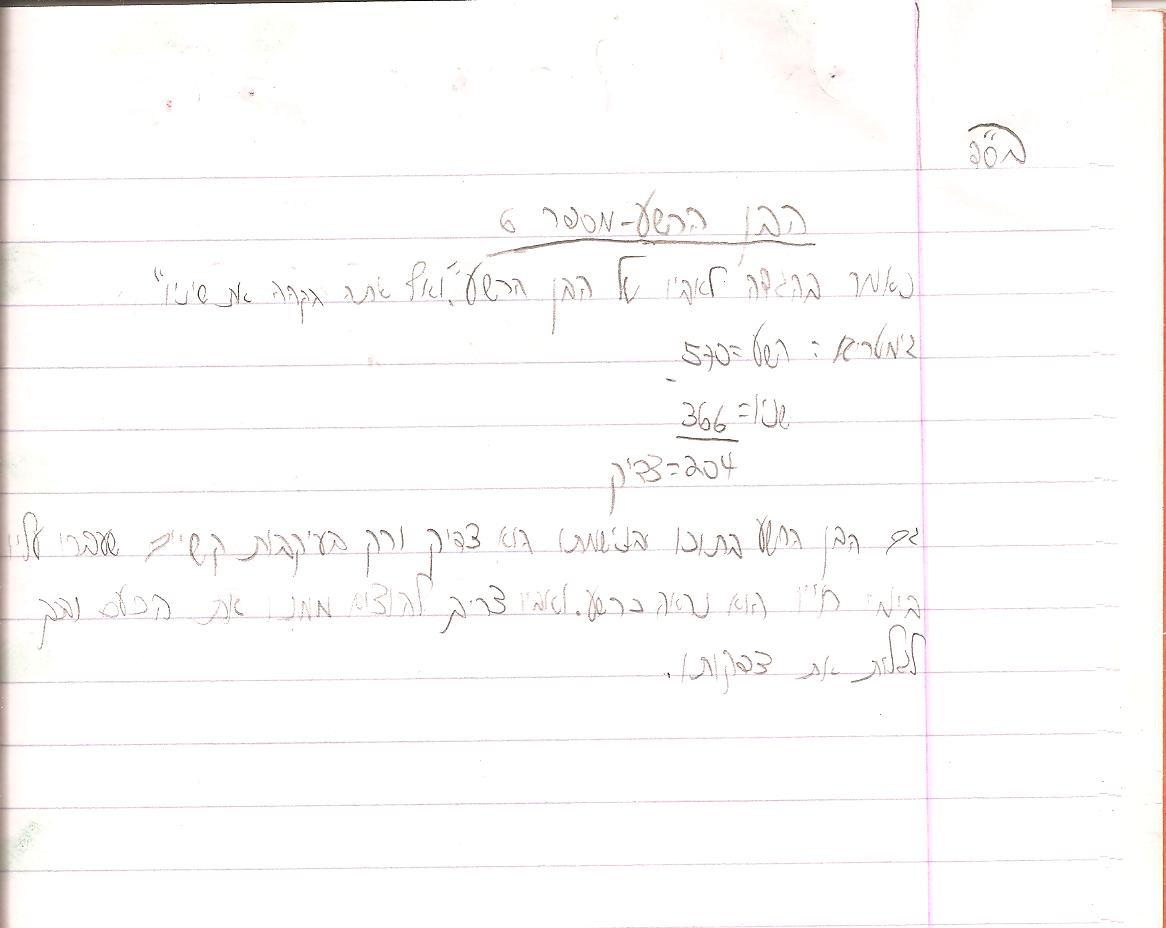 בס"ד
הבן הרשע-מספר 6
נאמר בהגדה לאביו של הבן הרשע:"ואף אתה הקהה את שיניו"
גימטריא: רשע=570
-
שניו=366
204=צדיק
גם הבן הרשע בתוכו ובנשמתו הוא צדיק ורק בעיקבות קשיים שעברו עליו
בימי חייו הוא נראה כרשע. ואביו צריך להוציא ממנו את הכעס ובכך
לגלות את צדקותו.